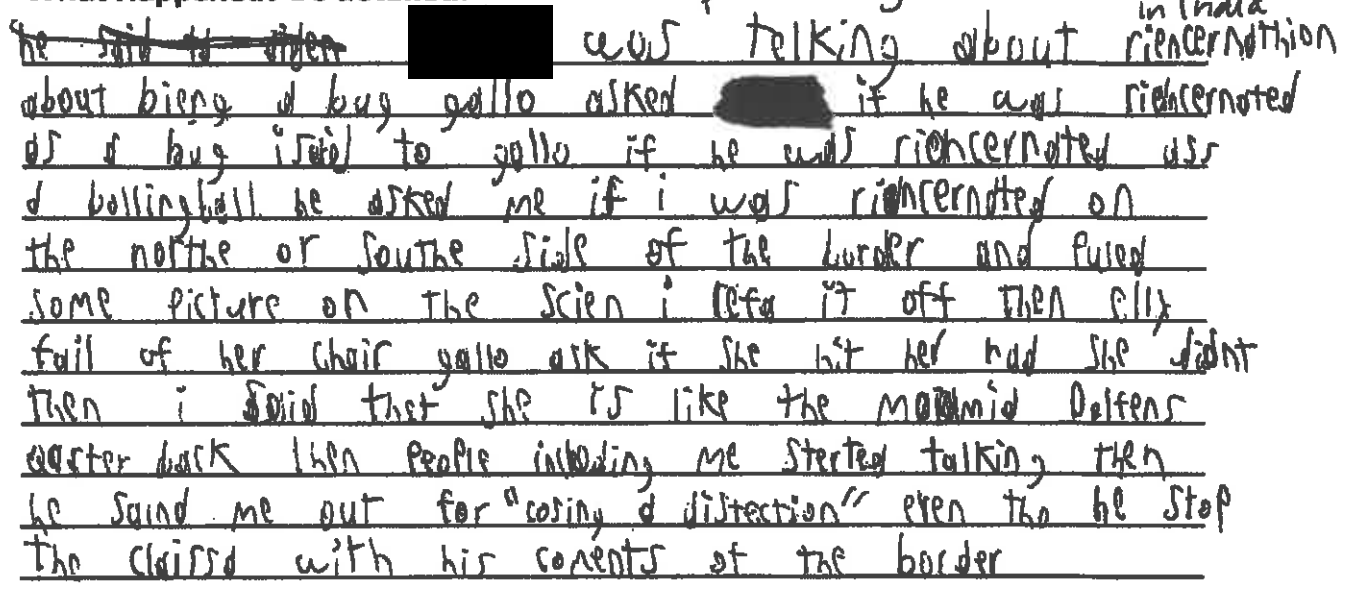 in India
he said to aiden was telking about riencernathion
about bieng a bug gallo asked if he was riencernated
as a bug i said to gallo if he was riencernated ass
a bollingball he asked me if i was riencernated on
the northe or southe side of the burder and puled
some picture on the scien i it off then elly
fall of her chair gallo ask if she hit her had she didnt
then i said that she is like the Dolfens
qarster back then people incloding me sterted talking then
he saind me out for "cosing a distection" even tho he stop
the claissd with his coments of the border